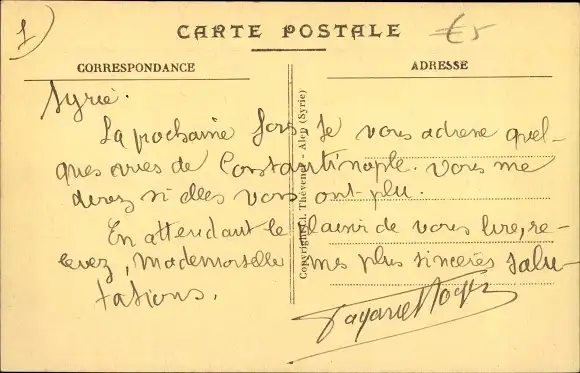 1)
CARTE POSTALE
€5
CORRESPONDANCE
ADRESSE
Syrie.
La prochaine fois Je vous adresse quel-
ques vues de Constantinople. Vous me
direz si elles vous ont plu.
En attendant le plaisir de vous lire, re-
cevez, Mademoiselle mes plus sincères salu-
tations.
Copyright Cl. Thévenet - Alep (Syrie)